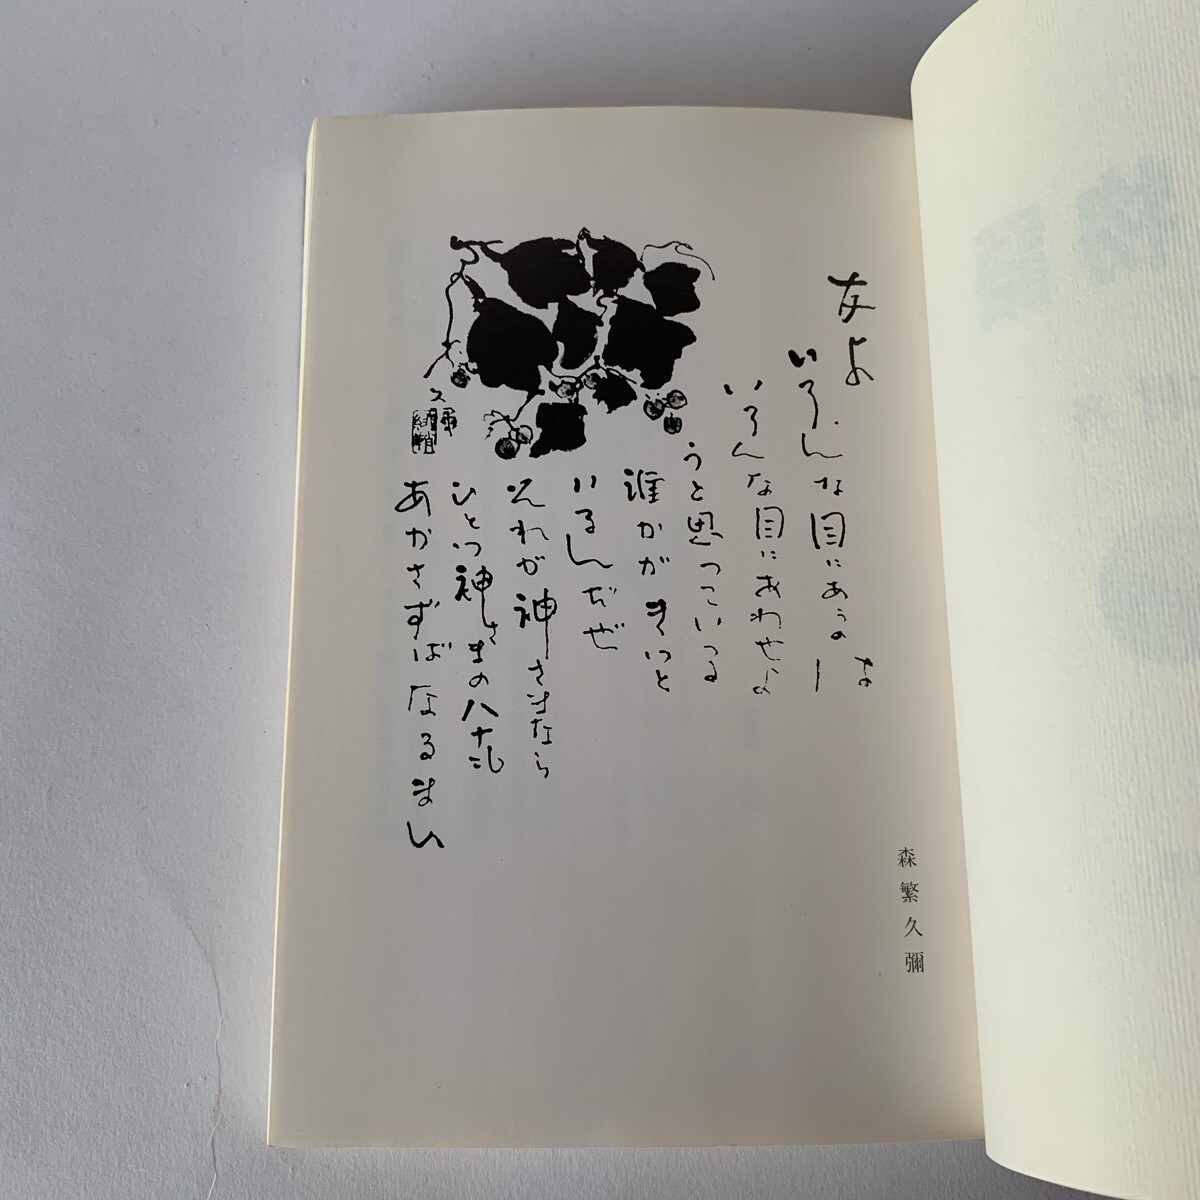 森繁久彌
なよ
いろんな目にあうのー
な
いろんな目にあわせよ
うと思っている
誰かがきっと
いるんだぜ
それが神さまなら
ひとつ神さまのハナを
あかさずばなるまい
久彌